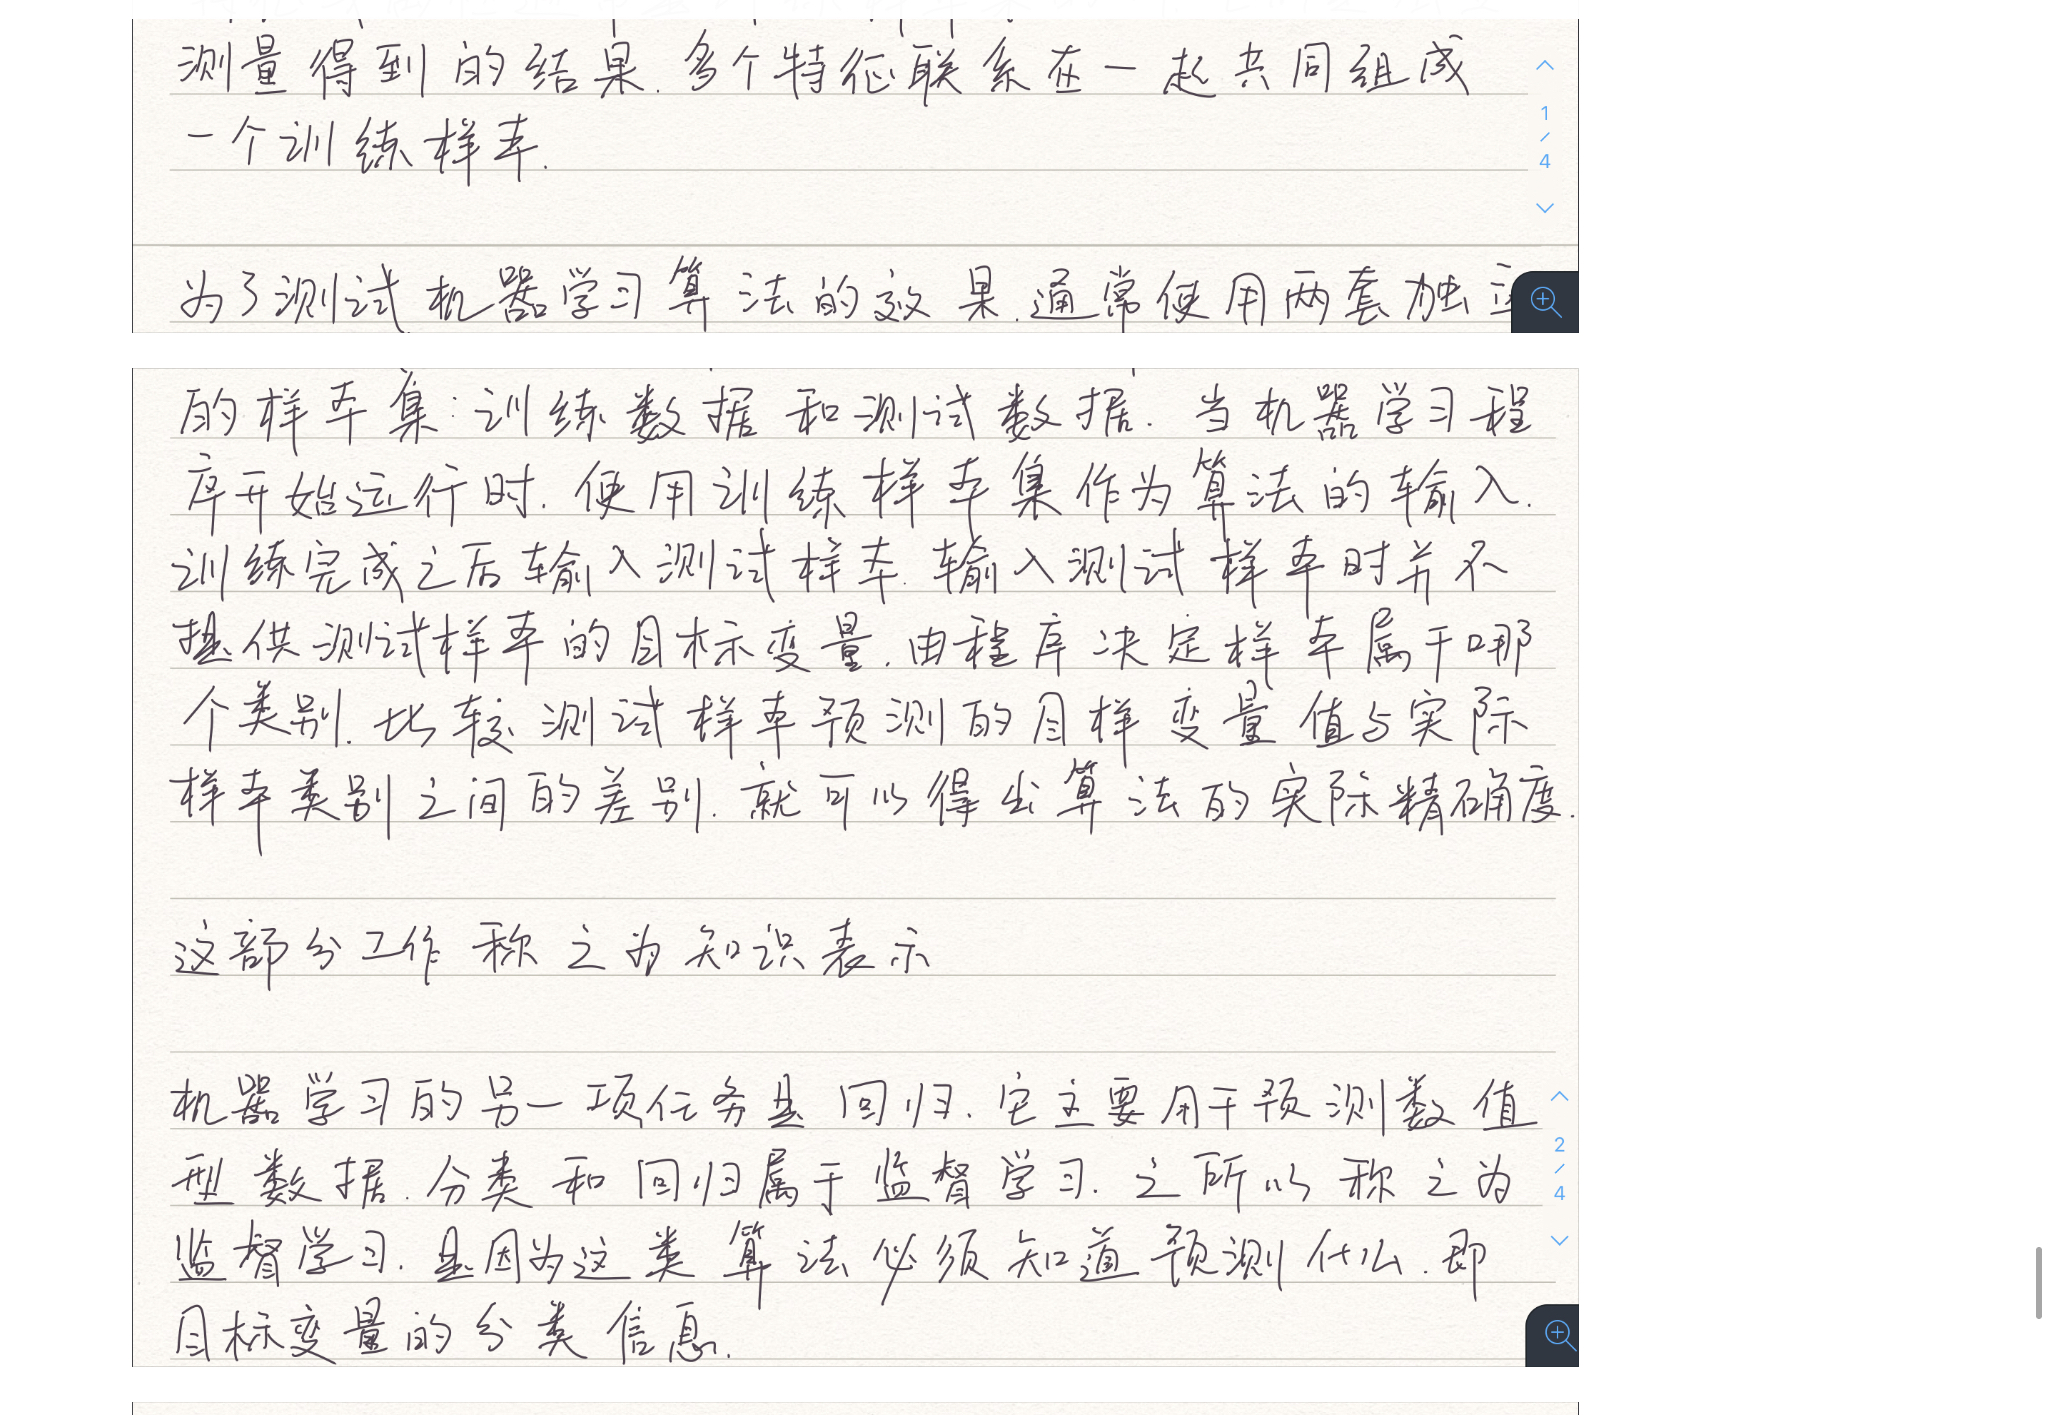 测量得到的结果.多个特征联系在一起共同组成
一个训练样本.
1
/
4
为了测试机器学习算法的效果.通常使用两套独立
的样本集:训练数据和测试数据.当机器学习程
序开始运行时.使用训练样本集作为算法的输入.
训练完成之后输入测试样本.输入测试样本时并不
提供测试样本的目标变量.由程序决定样本属于哪
个类别.比较测试样本预测的目样变量值与实际
样本类别之间的差别.就可以得出算法的实际精确度.
这部分工作称之为知识表示
机器学习的另一项任务是回归.它主要用于预测数值
型数据.分类和回归属于监督学习.之所以称之为
监督学习.是因为这类算法必须知道预测什么.即
目标变量的分类信息.
2
/
4